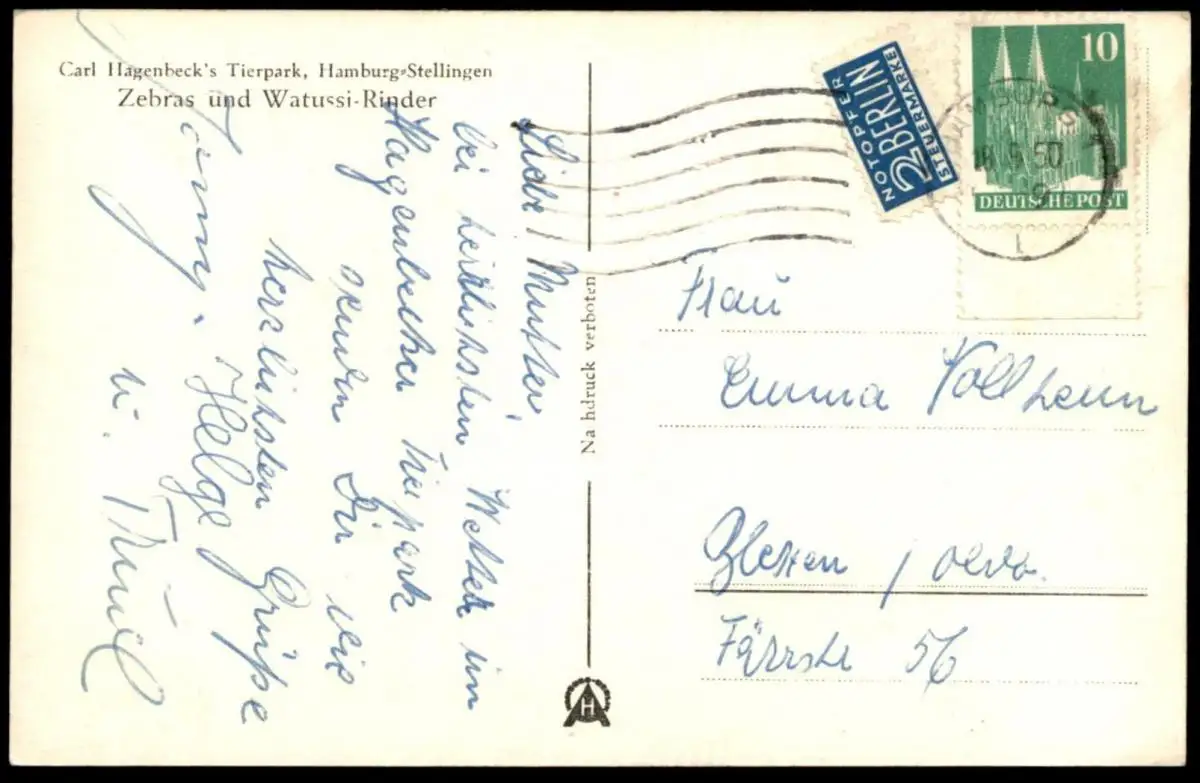 Carl Hagenbeck's Tierpark, Hamburg-Stellingen
Zebras und Watussi-Rinder
Liebe Mutter,
bei herrlichstem Wetter im
Hagenbecker Tierpark
senden Dir die
herzlichsten Grüße
Helge
u.
Na hdruck verboten
NOTOPFER
2 BERLIN
STEUERMARKE
10
DEUTSCHE POST
18.5.50
Frau
Emma
56
H